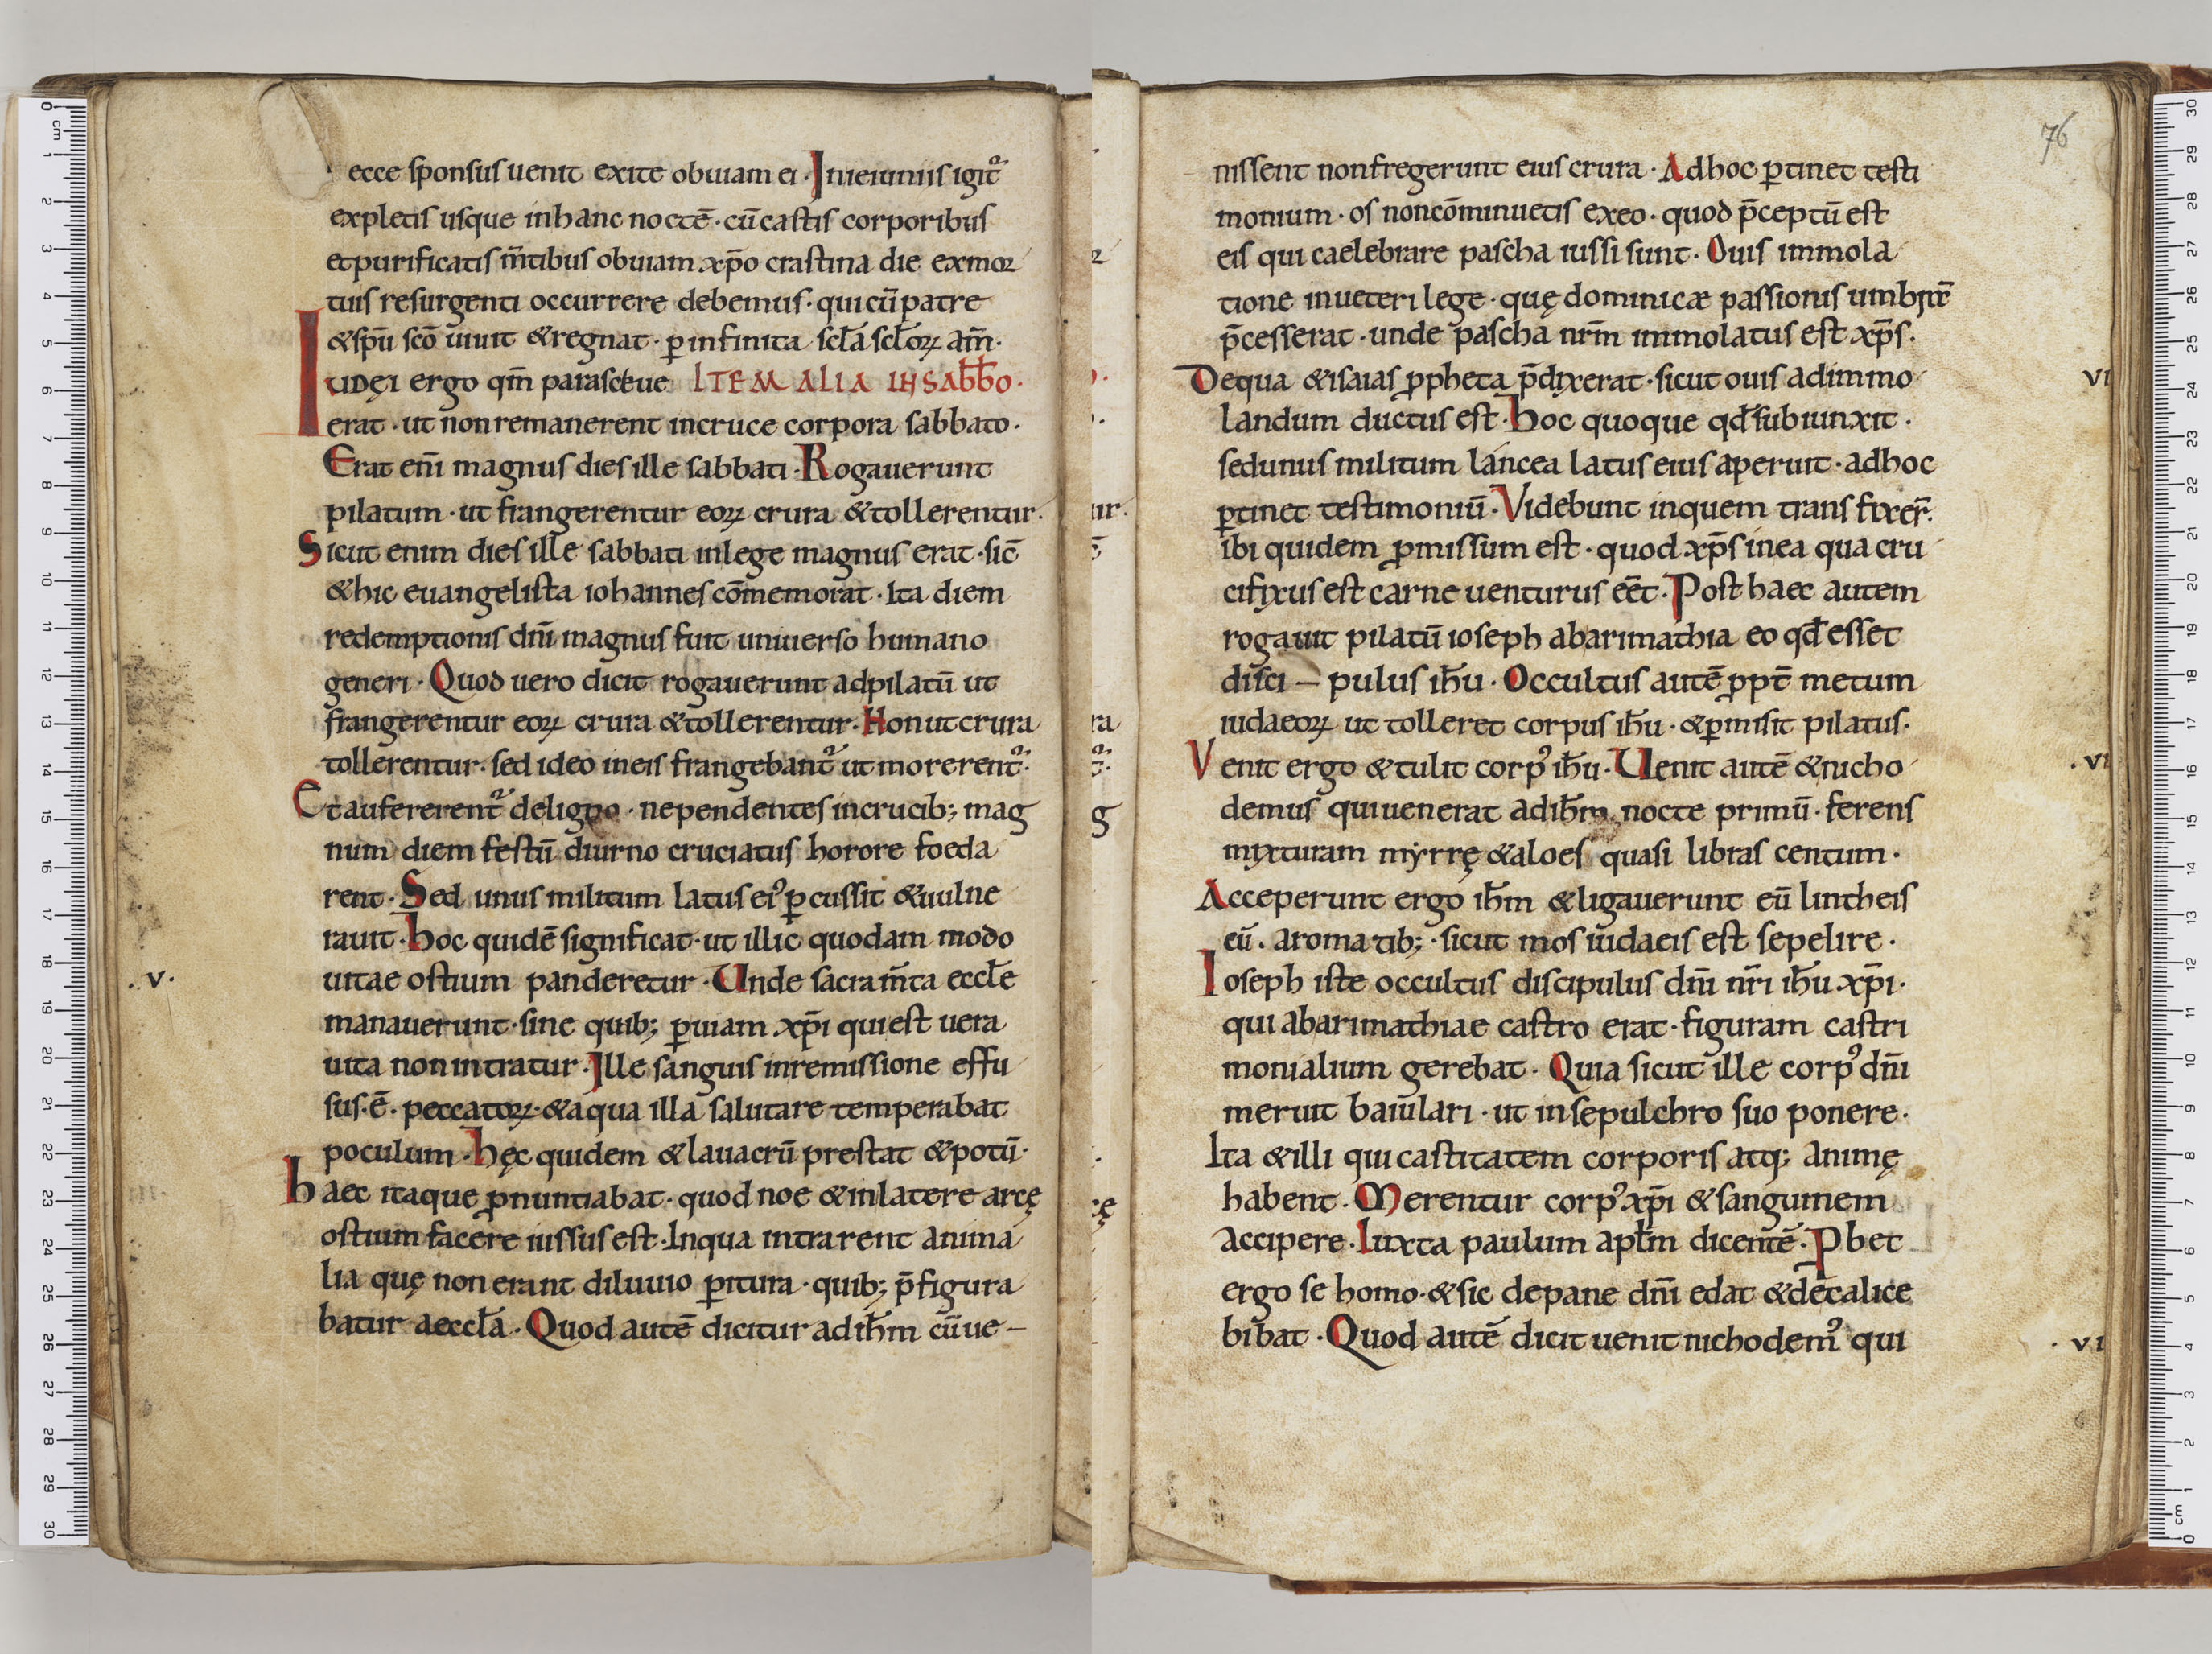 ecce sponsus uenit exite obuiam ei · In ieiuniis igit᷑
expletis usque inhanc noctē · cū castis corporibus
et purificatis m̄tibus obuiam xp̄o crastina die exmor
tuis resurgenti occurrere debemus · qui cū patre
& sp̄u sc̄o uiuit & regnat · ꝑ infinita scl̄a scl̄oꝝ am̄ ·
Iudęi ergo qm̄ parasceue ITEM ALIA IN SABB̄O ·
erat · ut non remanerent incruce corpora sabbato ·
Erat eni̅ magnus dies ille sabbati · Rogauerunt
pilatum · ut frangerentur eoꝝ crura & tollerentur ·
Sicut enim dies ille sabbati inlege magnus erat · sic̄
& hic euangelista iohannes cōmemorat · Ita diem
redemptionis dn̄i magnus fuit uniuerso humano
generi · Quod uero dicit rogauerunt adpilatū ut
frangerentur eoꝝ crura & tollerentur · Non ut crura
tollerentur · sed ideo ineis frangebant᷑ ut morerent᷑ ·
Et aufererent᷑ deligno · nependentes incrucib; mag
num diem festū diurno cruciatus horore foeda
rent · Sed unus militum latus ei᾽ ꝑcussit & uulne
rauit · Hoc quidē significat · ut illic quodam modo
uitae ostium panderetur · Unde sacram̄ta eccl̄e
. v . manauerunt · sine quib; ꝑ uiam xp̄i qui est uera
uita non intratur · Ille sanguis inremissione effu
sus · ē · peccatoꝝ · & aqua illa salutare temperabat
poculum · Hęc quidem & lauacrū prestat & potū ·
Haec itaque ꝓnuntiabat · quod noe & inlatere arcę
ostium facere iussus est · Inqua intrarent anima
lia quę non erant diluuio ꝑitura · quib; p̄figura
batur aeccl̄a · Quod autē dicitur ad ih̄m cū ue –
76
nissent non fregerunt eius crura · Ad hoc ꝑtinet testi
monium · os non cōminuetis exeo · quod p̄ceptū est
eis qui caelebrare pascha iussi sunt · Ouis immola
tione inueteri lege · quę dominicæ passionis umbra
p̄cesserat · unde pascha nr̄m immolatus est xp̄s ·
De qua & isaias ꝓpheta p̄dixerat · sicut ouis adimmo vi
landum ductus est · Hoc quoque qd̄ subiunxit ·
sed unus militum lancea latus eius aperuit · ad hoc
ꝑtinet testimoniū · Videbunt inquem transfixer̄ ·
ibi quidem ꝓmissum est · quod xp̄s inea qua cru
cifixus est carne uenturus eēt · Post haec autem
rogauit pilatū ioseph abarimathia eo qd̄ esset
disci – pulus ih̄u · Occultus autē ꝓpt̄ metum
iudaeoꝝ ut tolleret corpus ih̄u · & ꝑmisit pilatus ·
Venit ergo & tulit corp᾽ ih̄u · Uenit autē & nicho . vi
demus qui uenerat ad ih̄m nocte primū · ferens
mixturam myrrę & aloes quasi libras centum ·
Acceperunt ergo ih̄m & ligauerunt eū lintheis
eū . aromatib; · sicut mos iudaeis est sepelire ·
Ioseph iste occultus discipulus dn̄i nr̄i ih̄u xp̄i ·
qui abarimathiae castro erat · figuram castri
monialium gerebat · Quia sicut ille corp᾽ dn̄i
meruit baiulari · ut in sepulchro suo ponere ·
Ita & illi qui castitatem corporis atq; animę
habent · Merentur corp᾽ xp̄i & sanguinem
accipere · Iuxta paulum apl̄m dicentē · Pbet
ergo se homo · & sic depane dn̄i edat & decalice
bibat · Quod autē dicit uenit nichodem᾽ qui . vi